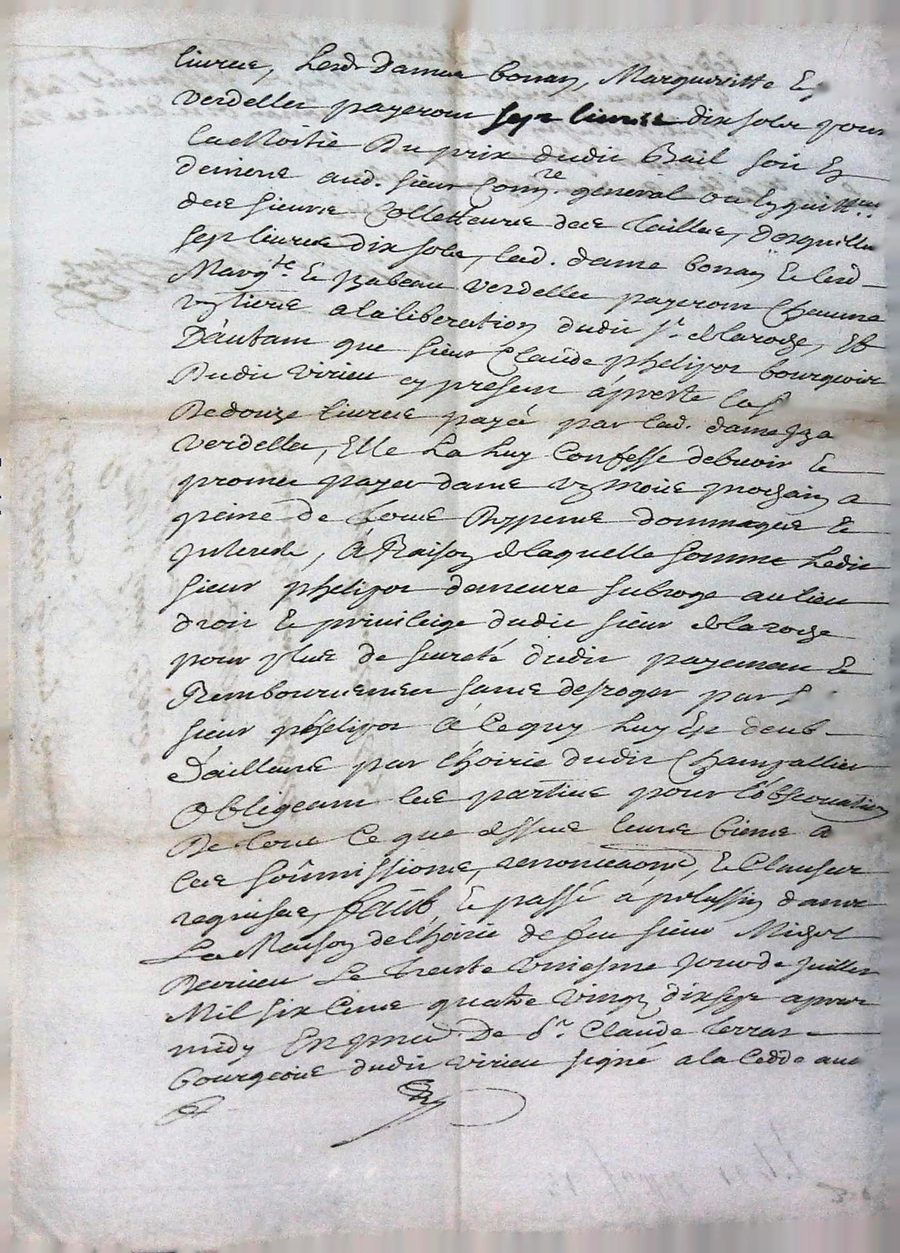 livres, Lesd. Dames bonan, Margueritte Et
Verdellet payeront sept livres dix sols pour
La Moitié Du prix dudit Bail soit En
deniers aud. sieur Comre. general ou En quittces
des sieurs Collecteurs des Tailles, desquelles
sept livres dix sols, lad. dame bonan Et lesd.
Margte. Et Izabeau Verdellet payeront Chacune
un tiers a la liberation dudit sr. delaroze, Et
D'autant que sieur Claude phelipot bourgeois
Dudit Virieu cy present a preste
De douze livres payé par lad. dame
Verdellet, Elle La Luy Confesse debvoir Et
promet payer dans un mois prochain a
peine de tous Despens dommages Et
Interests, à Raison de laquelle somme Ledit
sieur phelipot demeure subrogé au lieu
droit Et privilege dudit sieur delaroze
pour plus de sureté dudit payement Et
Rembourcement sans desroger par
sieur phelipot à Ce quy Luy Est deub
d'ailleurs par l'hoirie dudit Champallier
Obligeant les parties pour l'observation
De tout Ce que dessus leurs biens a
Les soûmissions, renonciaons, Et Clauses
requises, faict Et passé à polassin dans
La Maison de l'hoirie de feu sieur Michel
Devrieu Le trente uniesme Jour de Juillet
Mil six Cens quatre Vingt dix sept apres
midy En pnce De sr. Claude terras
bourgeois dudit virieu signé a la Cedde avec